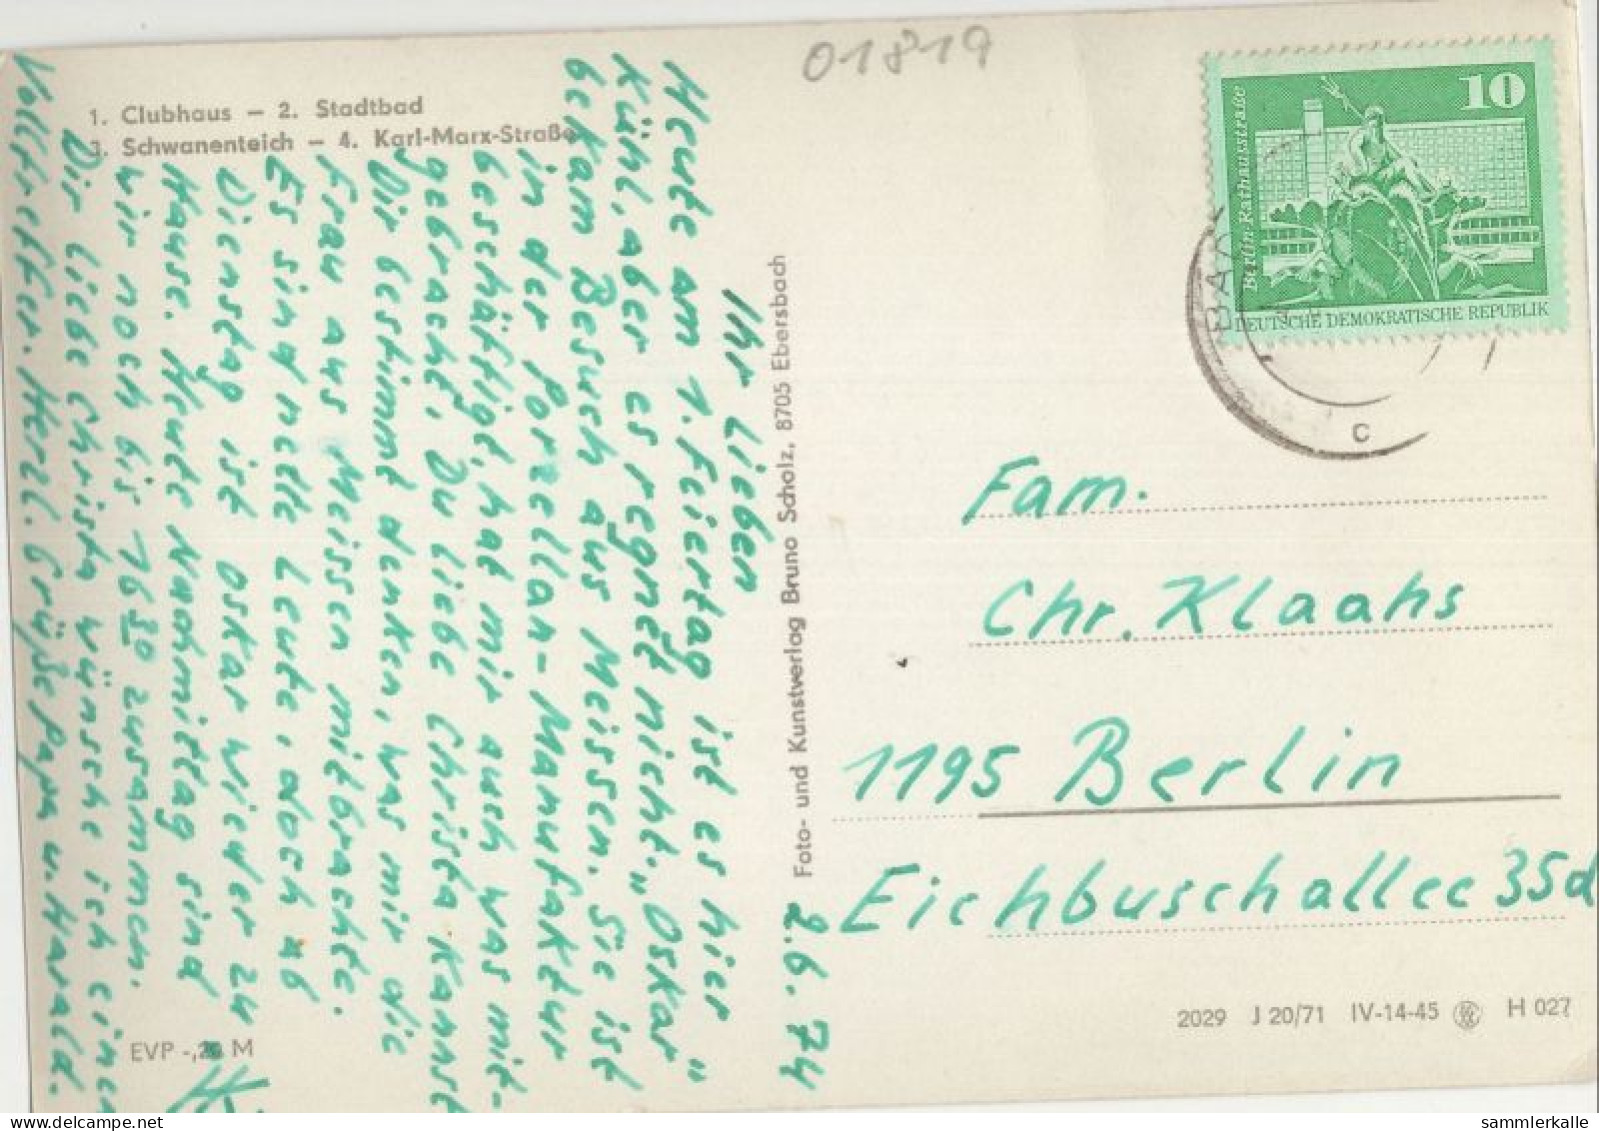 01819
1. Clubhaus – 2. Stadtbad
3. Schwanenteich – 4. Karl-Marx-Straße
2.6.74
Ihr Lieben
Heute am 1. Feiertag ist es hier
kühl, aber es regnet nicht. „Oskar"
bekam Besuch aus Meissen. Sie ist
in der Porzellan-Manufaktur
beschäftigt, hat mir auch was mit-
gebracht, Du liebe Christa kannst
Dir bestimmt denken, was mir die
Frau aus Meissen mitbrachte.
Es sind nette Leute, doch ab
Dienstag ist Oskar wieder zu
Hause. Heute Nachmittag sind
wir noch bis 16 30 zusammen.
Dir liebe Christa wünsche ich einen
Volltreffer. Herzl. Grüße Papa u. Harald.
EVP -,20 M
Foto- und Kunstverlag Bruno Scholz, 8705 Ebersbach
10
Berlin-Rathausstraße
DEUTSCHE DEMOKRATISCHE REPUBLIK
BAD
c
Fam.
Chr. Klaahs
1195 Berlin
Eichbuschallee 35d
2029 J 20/71 IV-14-45 H 027
sammlerkalle